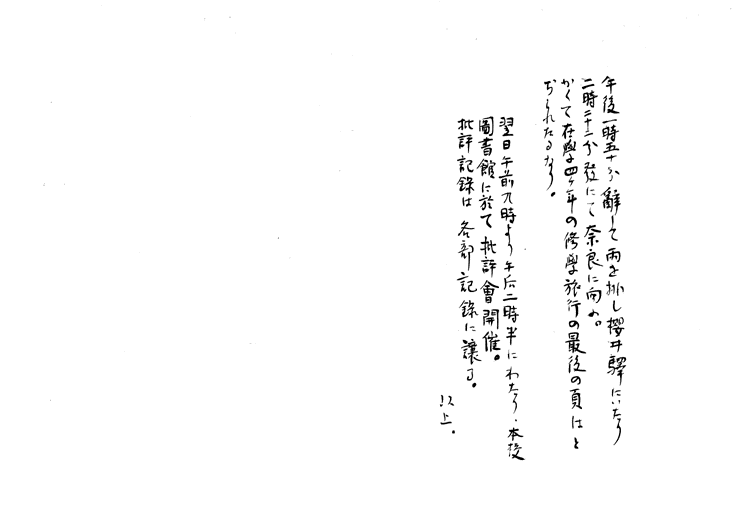 午後一時五十分辭して雨を排し櫻井驛にいたり
二時二十二分發にて奈良に向ふ。
かくて在學四ヶ年の修學旅行の最後の頁はと
ぢられたるなり。
翌日午前九時より午后二時半にわたり、本校
圖書館に於て批評會開催。
批評記録は各部記録に讓る。
以上。